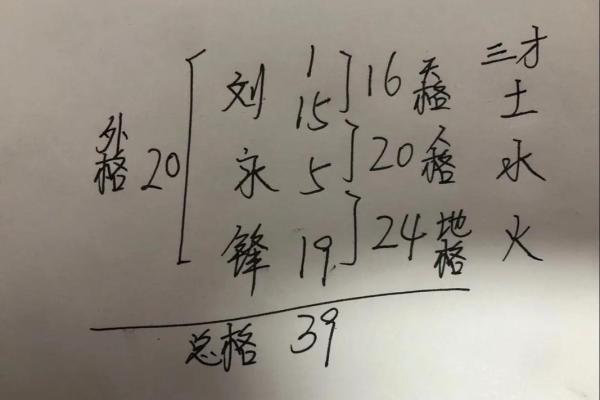 1 三才
刘 15 16 天格 土
外格 20 永 5 20 人格 水
锋 19 24 地格 火
总格 39